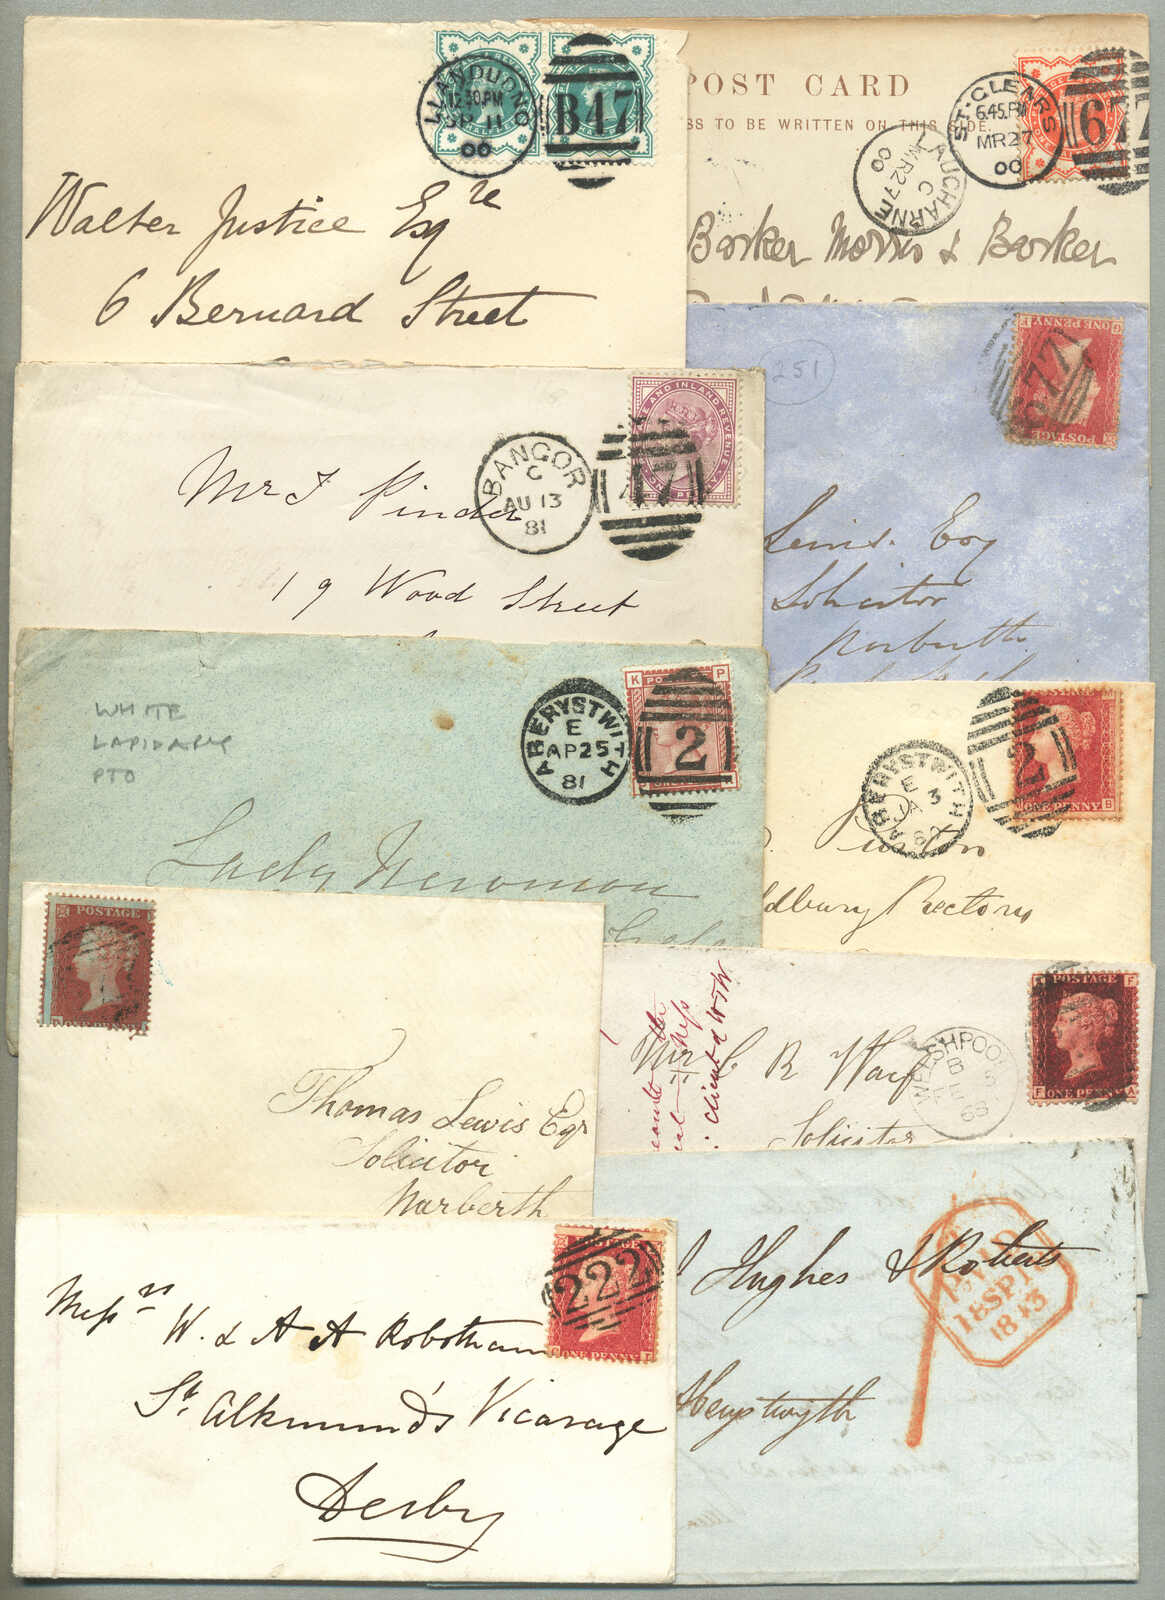 LLANDUDNO
12.30.PM
SP 11
00
B47
Walter Justice Esqre
6 Bernard Street
POST CARD
SS TO BE WRITTEN ON THIS SIDE.
ST. CLEARS
6.45.PM
MR 27
00
677
LAUGHARNE
C
MR 27
00
Barker Morris & Barker
BANGOR
C
AU 13
81
47
E AND INLAND REVENUE
Mr J Pinder
19 Wood Street
251
ONE PENNY
POSTAGE
677
Lewis. Esq
Solicitor
Narberth
WHITE
LAPIDAPLE
PTO
ABERYSTWITH
E
AP 25
81
K
P
2
Lady Newman
ABERYSTWITH
E
JA 3
80
2
M
ONE PENNY B
Purton
ldbury Rectory
POSTAGE
ONE PENNY
Thomas Lewis Esqr
Solicitor
Narberth
client d WTW
WELSHPOOL
B
68
POSTAGE F
F ONE PENNY A
Mr C R
Solicitor
222
POSTAGE
ONE PENNY
Messrs W. & A A Robotham
St. Alkmund's Vicarage
Derby
PAID
18 SP 18
1843
Hughes & Roberts
Aberystwyth